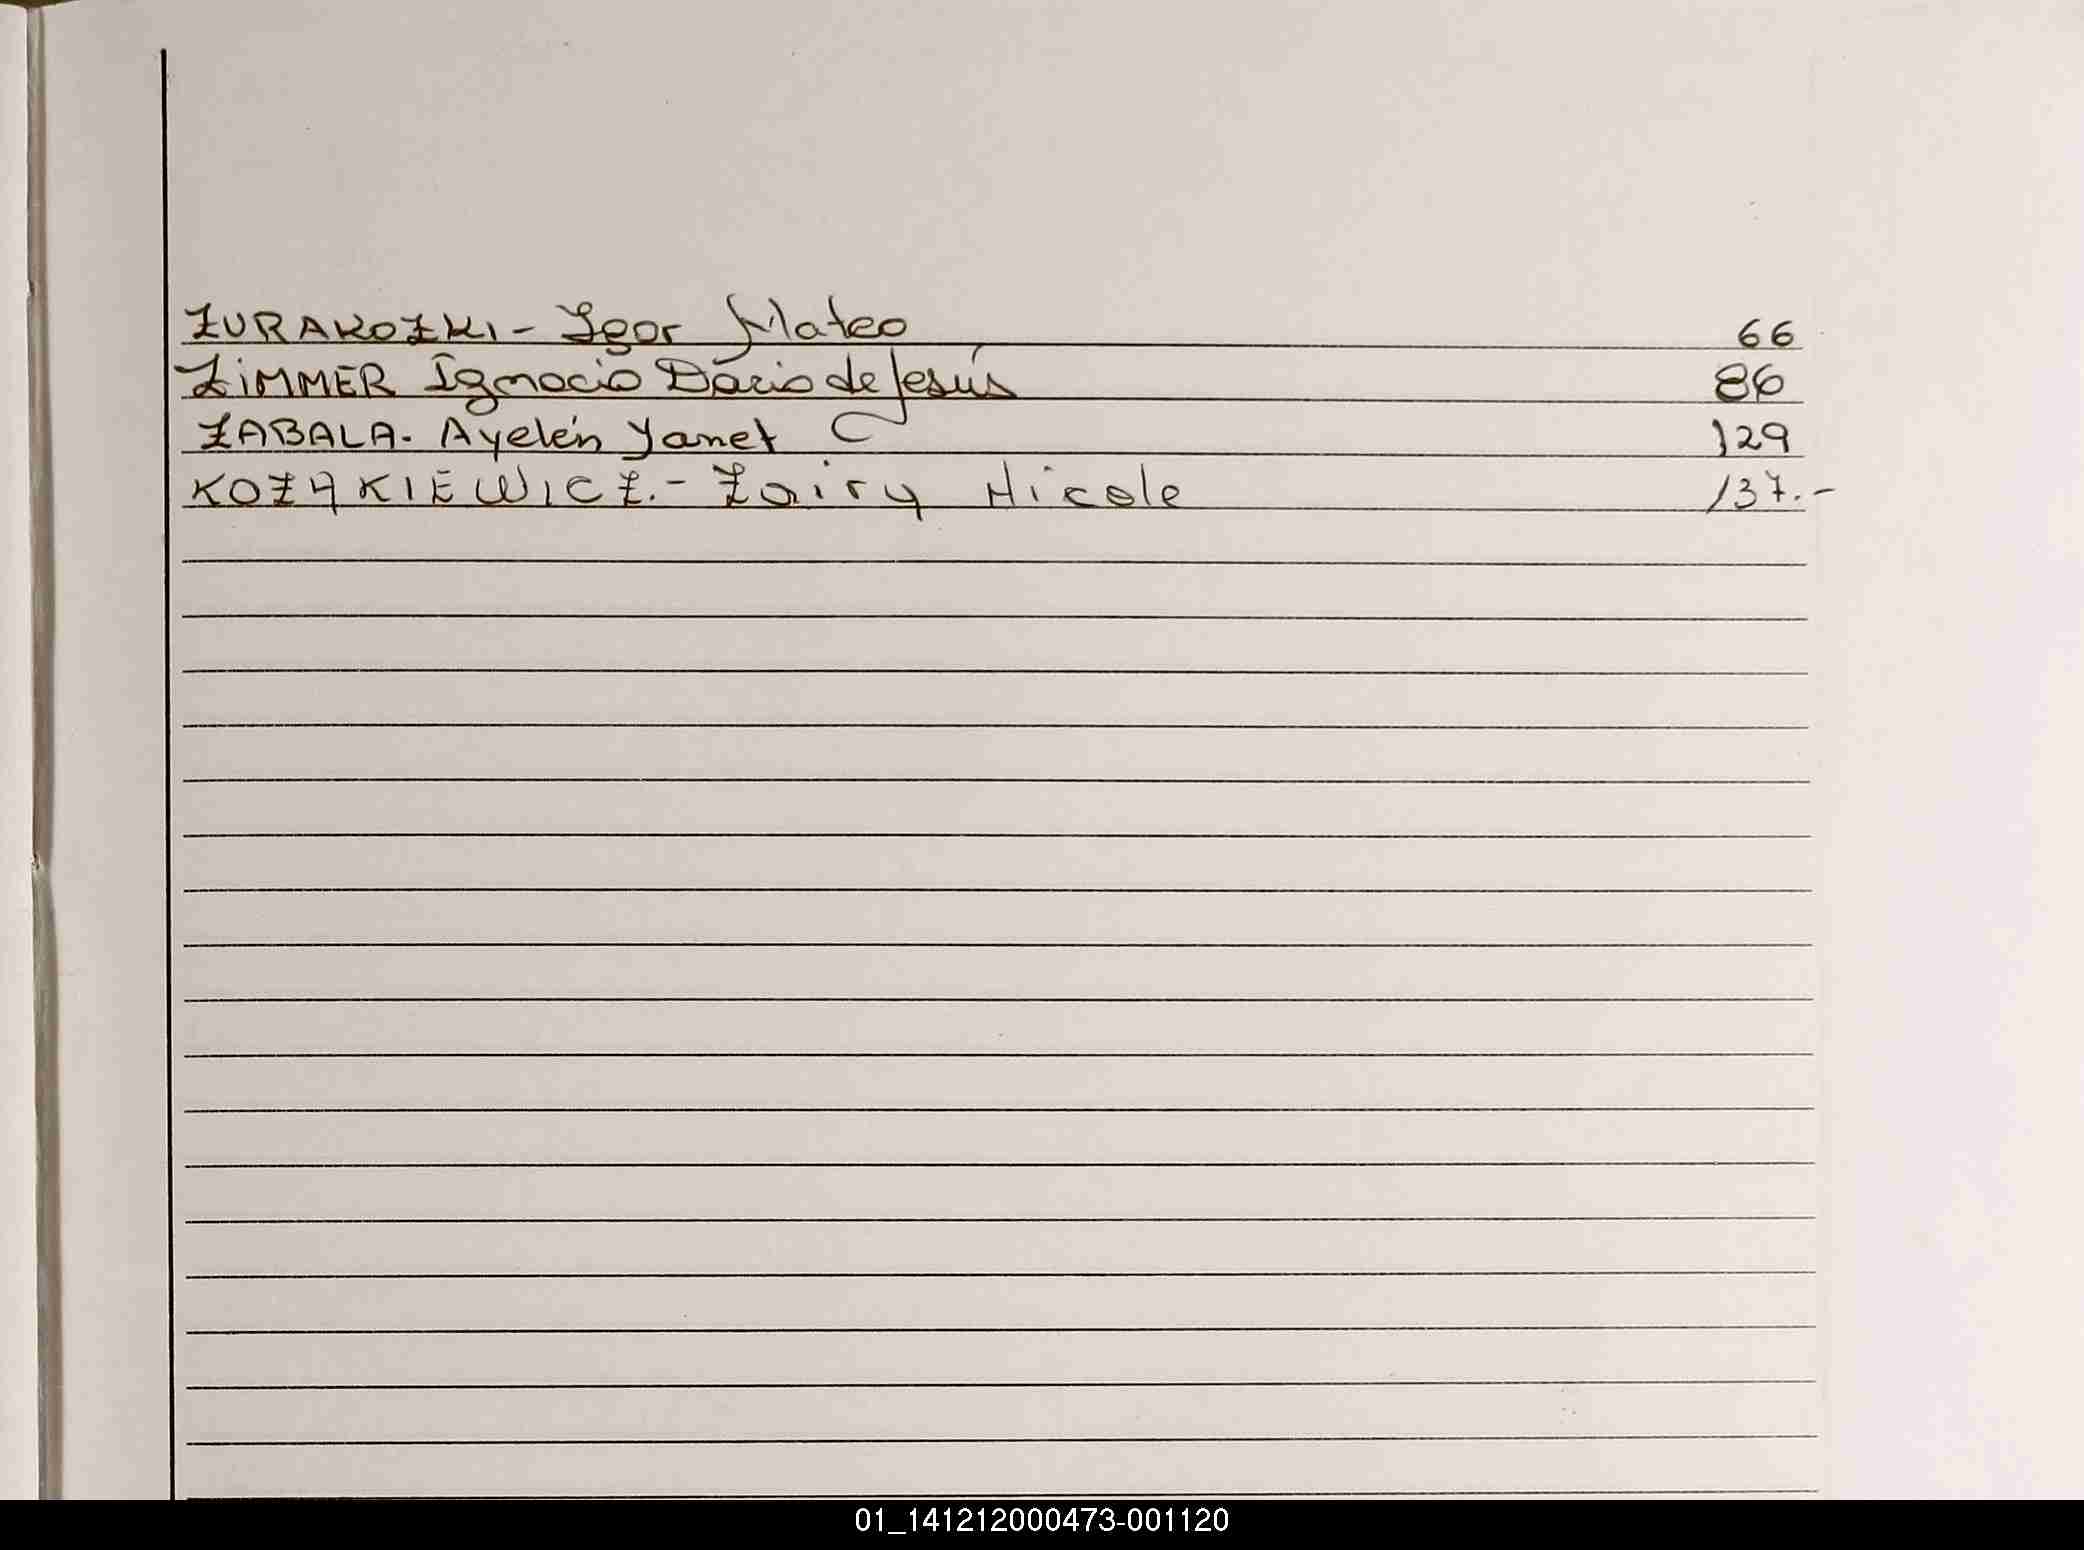 ZURAKOZKI - Igor Mateo 66
ZIMMER Ignacio Dario de Jesús 86
ZABALA. Ayelén Yanet 129
KOZAKIEWICZ.- Zairy Nicole 137.-
01_141212000473-001120